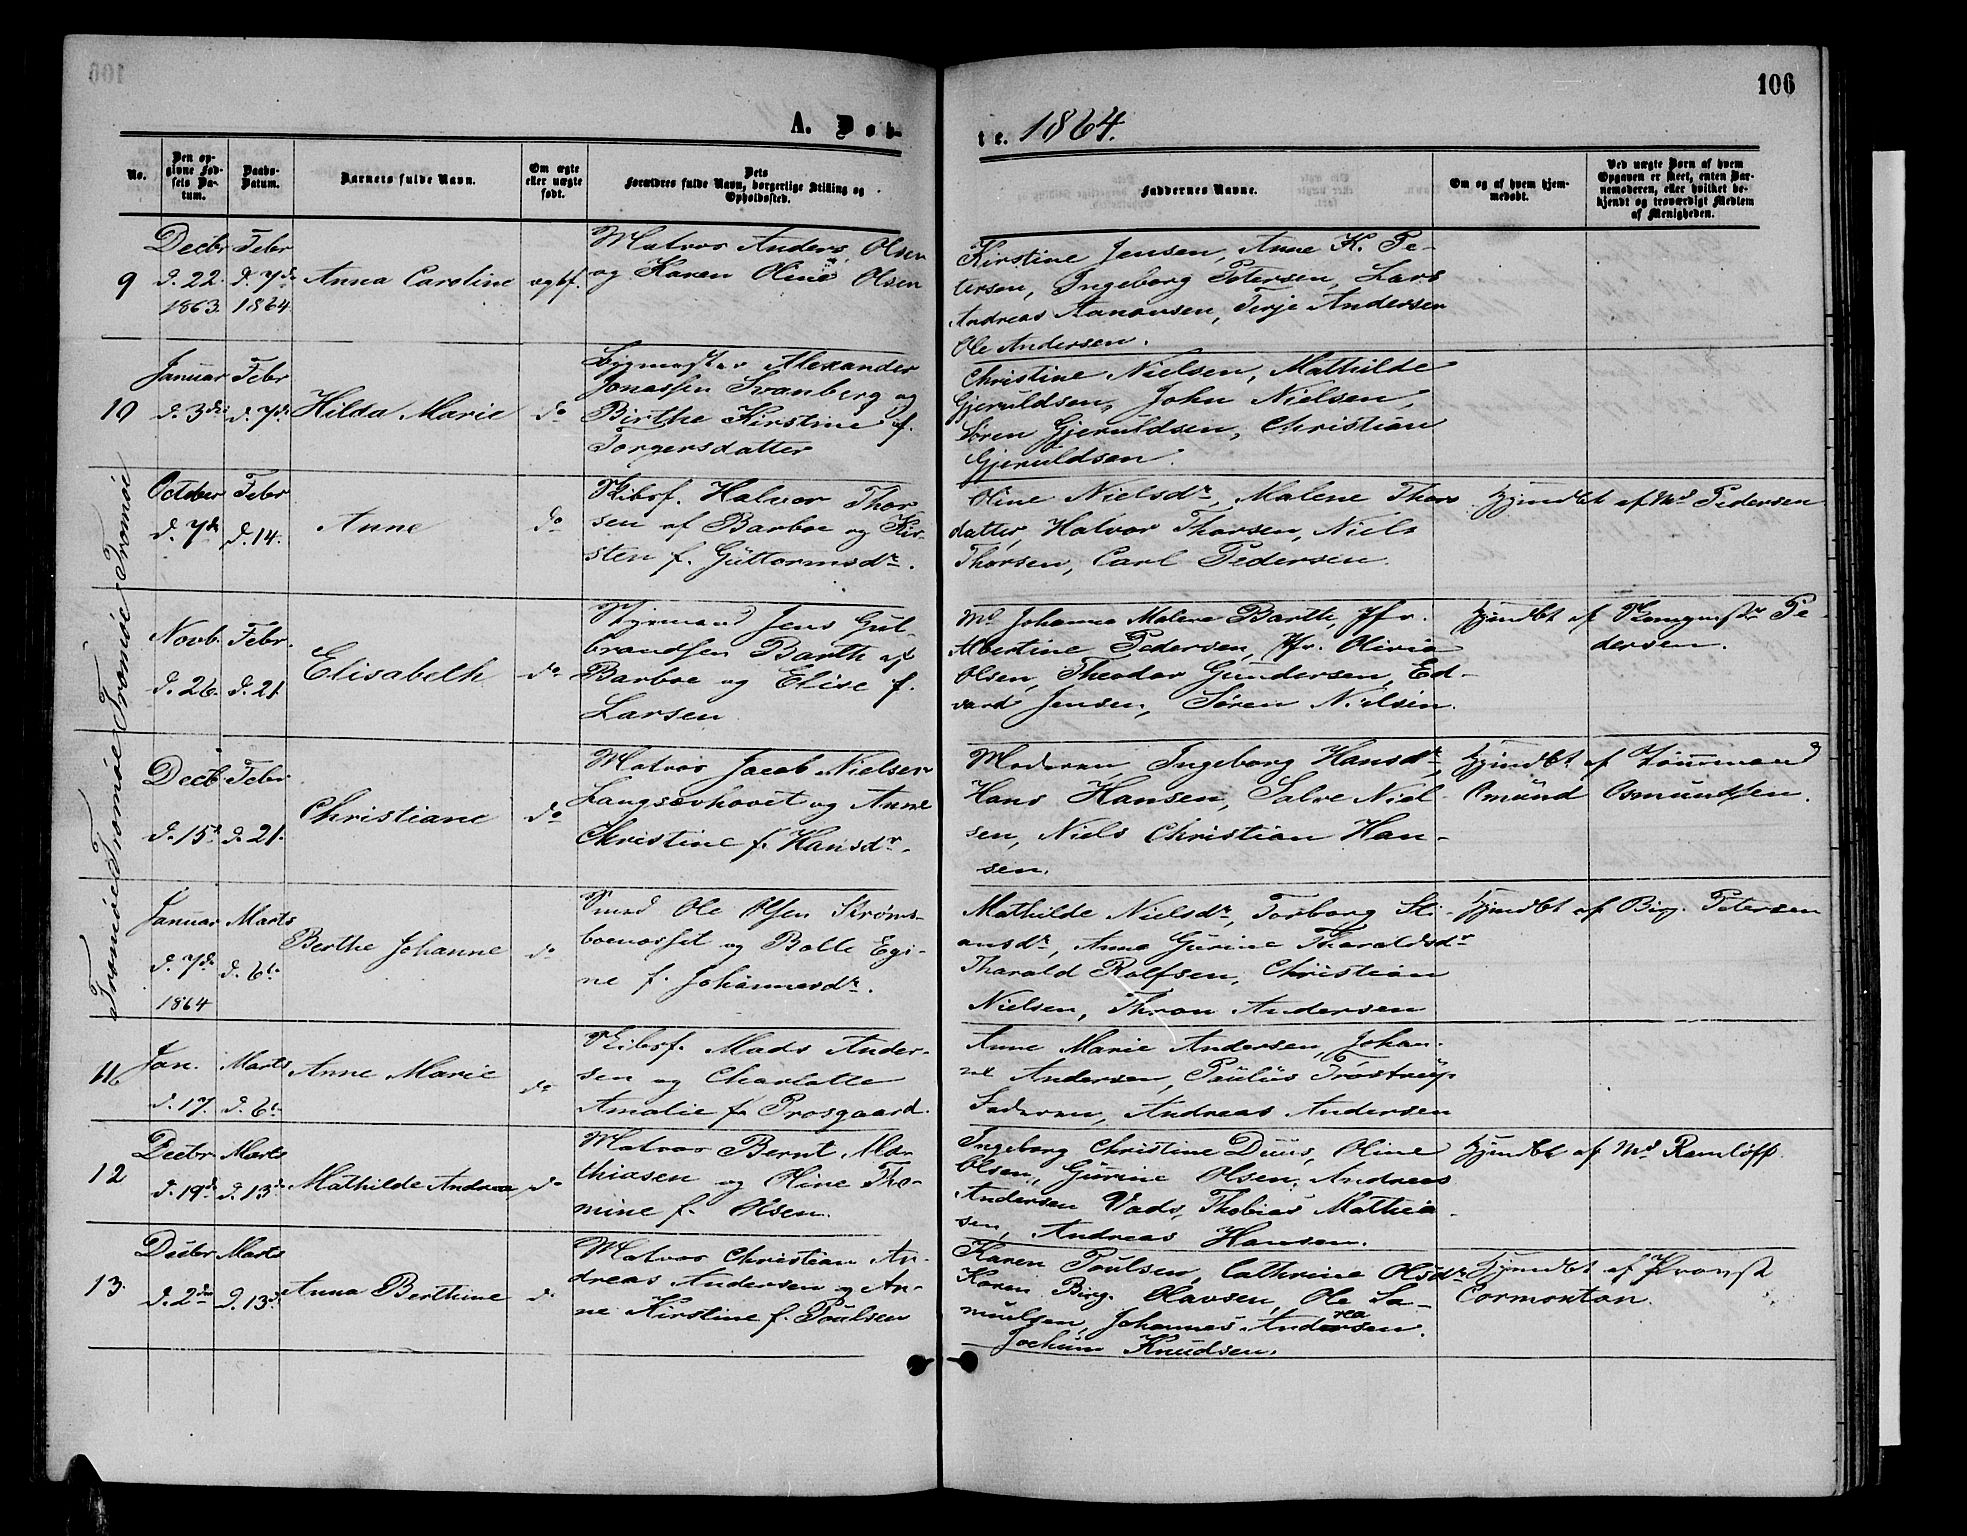 106
A. Døb-
te. 1864.
No.
Den opgivne Fødsels Datum.
Daabs-Datum.
Barnets fulde Navn.
Om ægte eller uægte født.
Dets Forældres fulde Navn, borgerlige Stilling og Opholdssted.
Faddernes Navne.
Om og af hvem hjemmedøbt.
Ved uægte Børn af hvem Opgaven er skeet, enten Barnemoderen, eller hvilket bekjendt og troværdigt Medlem af Menigheden.
9
Decbr
d. 22.
1863.
Febr
d. 7de
1864
Anna Caroline
ægtf.
Matros Anders Olsen
og Karen Oline Olsen
Kirstine Jensen, Anne K. Pe-
tersen, Ingeborg Petersen, Lars
Andreas Aanonsen, Terje Andersen
Ole Andersen.
10
Januar
d. 3die
Febr
d. 7de
Hilda Marie
do
Alexander
Jonassen Svanberg og
Birthe Kirstine f.
Torgersdatter
Christine Nielsen, Mathilde
Gjeruldsen, John Nielsen,
Søren Gjeruldsen, Christian
Gjeruldsen.
Tromøe
October
d. 7de
Febr
d. 14.
Anne
do
Skibsf. Halvor Thor
sen af Barboe og Kir-
sten f. Guttormsdr.
Oline Nielsdr, Malene Thors
datter, Halvor Thorsen, Niels
Thorsen, Carl Pedersen.
Hjmdbt af Md Pedersen
Tromøe
Novb.
d. 26.
Febr.
d. 21.
Elisabeth
do
Styrmand Jens Gul-
brandsen Barth af
Barboe og Elise f.
Larsen
Md Johanna Malene Barth, Jfr.
Albertine Pedersen, Jfr. Olivia
Olsen, Theodor Gundersen, Ed-
vard Jensen, Søren Nielsen.
Hjmdbt af Pe-
dersen.
Tromøe
Decb.
d. 15de
Febr
d. 21.
Christiane
do
Matros Jacob Nielsen
Langsævhovet og Anne
Christine f. Hansdr.
Moderen, Ingeborg Hansdr,
Hans Hansen, Salve Niel-
sen, Niels Christian Han-
sen.
Hjmdbt af Tømmermand
Omund Osmundsen.
Tromøe
Januar
d. 7de
1864
Marts
d. 6te
Berthe Johanne
do
Smed Ole Olsen Strøms-
boenæsset og Bolle Egi-
ne f. Johannesdr.
Mathilde Nielsdr, Torborg Sti-
ansdr, Anne Gurine Tharaldsdr
Tharald Rolfsen, Christian
Nielsen, Thron Andersen
Hjmdbt af Birg. Petersen
11
Jan.
d. 17.
Marts
d. 6te
Anne Marie
do
Skibsf. Mads Ander-
sen og Charlotte
Amalie f. Prosgaard.
Anne Marie Andersen, Johan-
ne Andersen, Paulus Trostrup
Faderen, Andreas Andersen
12
Decbr
d. 19de
Marts
d. 13de
Mathilde Andrea
do
Matros Bernt Ma-
thiasen og Oline Tho-
mine f. Olsen.
Ingeborg Christine Duus, Oline
Olsen, Gurine Olsen, Andreas
Andersen Vads, Thobias Mathia-
sen, Andreas Hansen.
Hjmdbt af Md Ramløff.
13.
Decbr
d. 2den
Marts
d. 13de
Anna Berthine
do
Matros Christian An-
dreas Andersen og An-
ne Kirstine f. Poulsen
Karen Poulsen, Cathrine Olsdr
Karen Birg. Olavsen, Ole Sa-
muelsen, Johannes Andersen.
Jochum Knudsen.
Hjmdbt af Provst
Cormontan.